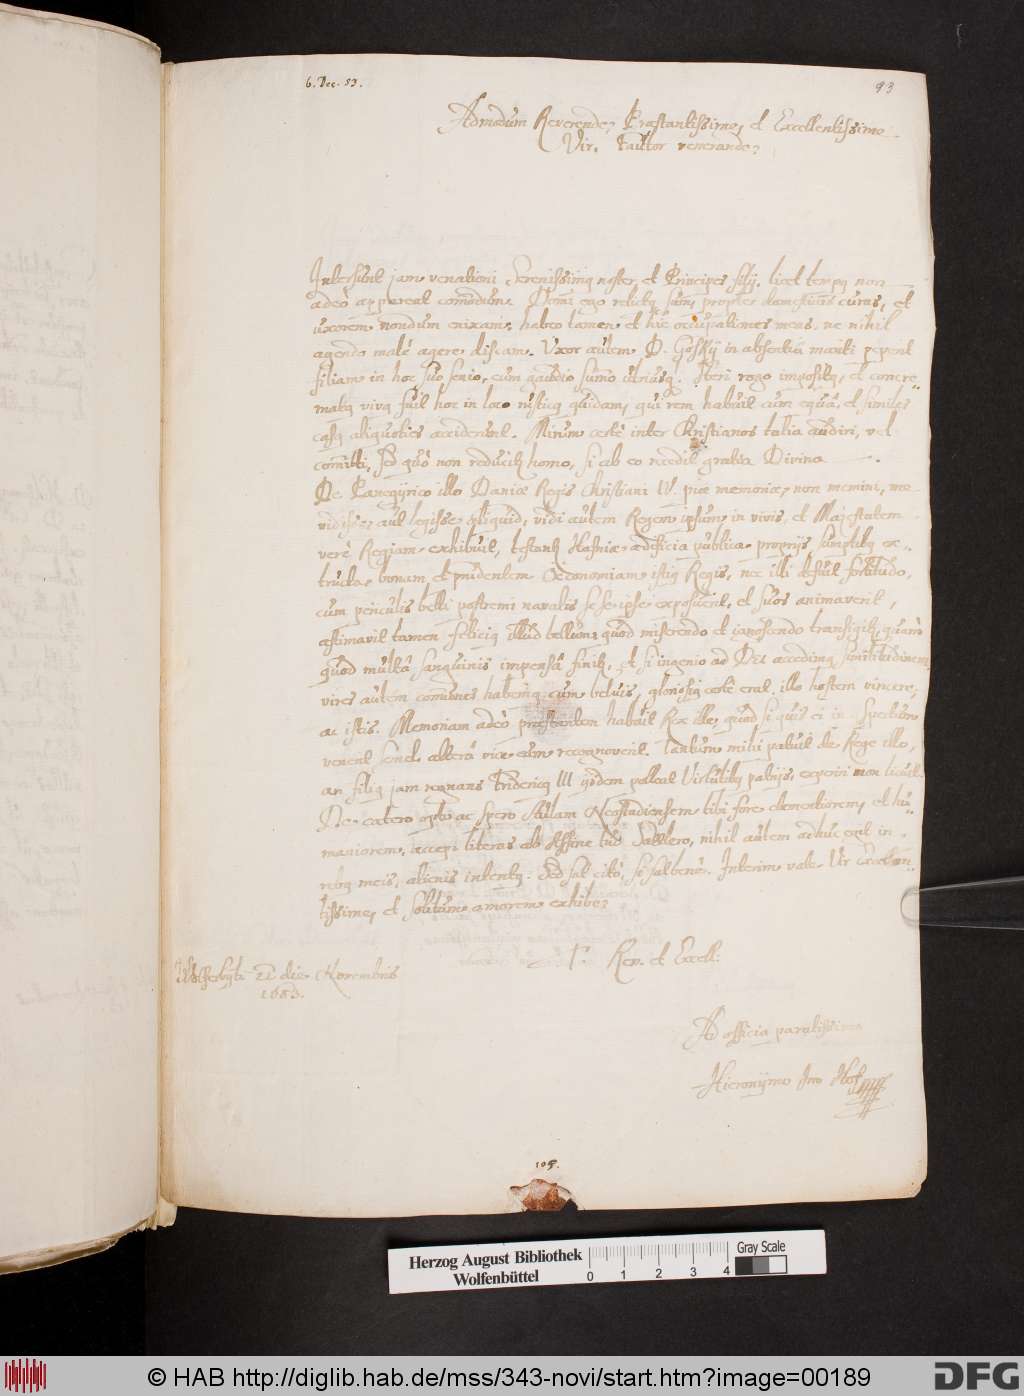 6. Dec. 83.
93
Admodum Reverende, Præstantissime, et Excellentissime
Vir. Fautor venerande,
Intersunt jam venationi Serenissimq noster, et Principes filij, licet tempq non
adeò appareat comodum. Domi ego relictq sum, propter domesticas curas, et
uxorem nondum enixam, habeo tamen et hîc occupationes meas, ne nihil
agendo malè agere discam. Uxor autem D. Goskij in absentia mariti peperit
filiam in hoc suo senio, cum gaudio sumo
Heri rogo impositq, et concre-
matq vivq fuit hoc in loco rusticq quidam, qui rem habuit cum equâ, et similes
casq aliquoties acciderunt. Mirum certè inter Christianos talia audiri, vel
comitti, sed quò non reducitr homo, si ab eo recedit gratia Divina.
De Panegyrico illo Daniæ Regis Christiani IV. piæ memoriæ, non memini, me
vidisse, aut legisse aliquid, vidi autem Regem ipsum in vivis, et Majestatem
verè Regiam exhibuit, testantr Hafniæ ædificia publica proprijs sumptibq ex-
tructa, bonam, et prudentem Oeconomiam istiq Regis, nec illi defuit fortitudo,
cum periculis belli postremi navalis se se ipse exposuerit, et suos animaverit,
æstimavit tamen feliciq illud bellum, quod miserendo et ignoscendo transigitr, quàm
quod multâ sanguinis impensâ finitr, et si ingenio ad Dei accedimq similitudinem
vires autem comunes habemq cum beluis, gloriosiq certè erat illo hostem vincere,
ac istis. Memoriam adeò præstantem habuit Rex ille, quòd si quis ei in conspectum
venerit semel, alterâ vice eum recognoverit. Tantum mihi patuit de Rege illo,
an filiq jam regnans Fridericq III ijsdem polleat Virtutibq patrijs, experiri non licuit.
De cætero opto ac spero Aulam Neostadiensem tibi fore clementiorem, et hu-
maniorem, accepi literas ab Affine tuo Sattlero, nihil autem adhuc egit in
rebq meis, alienis intentq. Sed sat citò, si sat benè. Interim vale Vir Excellen-
tissime, et solitum amorem exhibe,
T. Rev. et Excell:
Wolferbyti 21 die Novembris
1653.
Ad officia paratissimq
Hieronymq Im Hof
105.
Herzog August Bibliothek
Wolfenbüttel
0 1 2 3 4
Gray Scale
© HAB http://diglib.hab.de/mss/343-novi/start.htm?image=00189
DFG